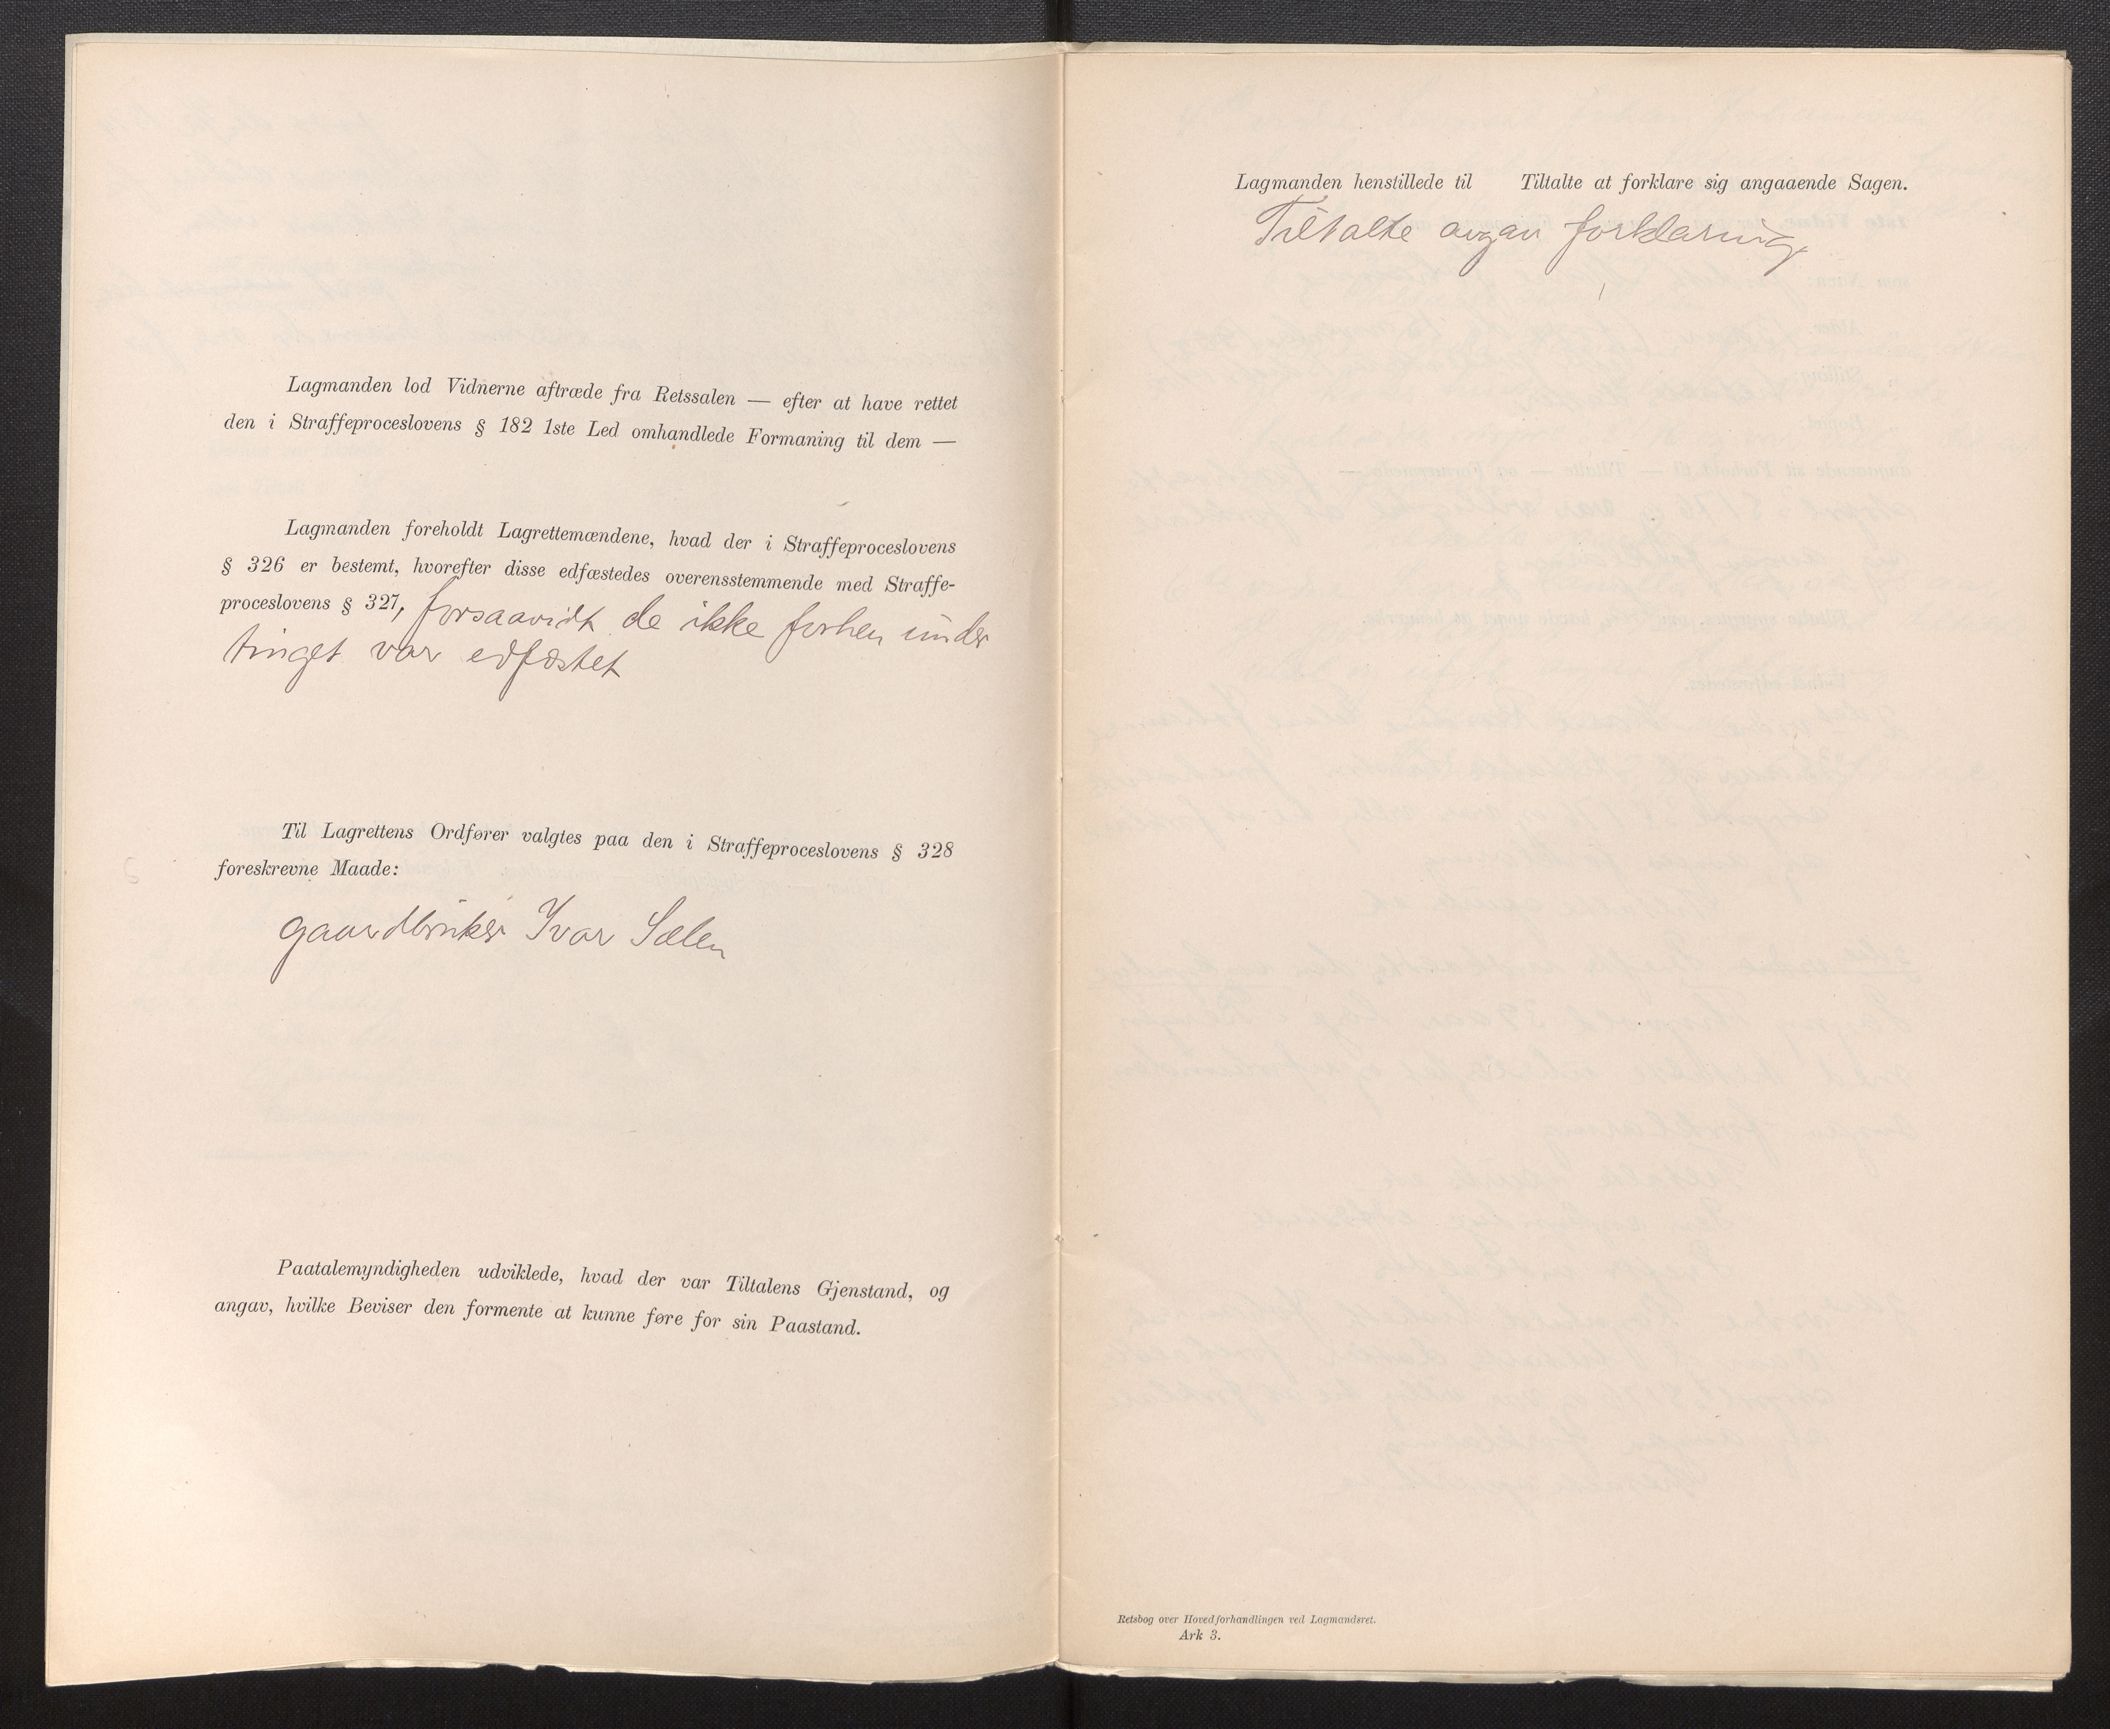 Lagmanden lod Vidnerne aftræde fra Retssalen — efter at have rettet
den i Straffeproceslovens § 182 1ste Led omhandlede Formaning til dem —
Lagmanden foreholdt Lagrettemændene, hvad der i Straffeproceslovens
§ 326 er bestemt, hvorefter disse edfæstedes overensstemmende med Straffe-
proceslovens § 327, forsaavidt de ikke forhen under
tinget var edfæstet
Til Lagrettens Ordfører valgtes paa den i Straffeproceslovens § 328
foreskrevne Maade:
gaardbruker Ivar Sælen
Paatalemyndigheden udviklede, hvad der var Tiltalens Gjenstand, og
angav, hvilke Beviser den formente at kunne føre for sin Paastand.
Lagmanden henstillede til Tiltalte at forklare sig angaaende Sagen.
Tiltalte avgav forklaring.
Retsbog over Hovedforhandlingen ved Lagmandsret.
Ark 3.